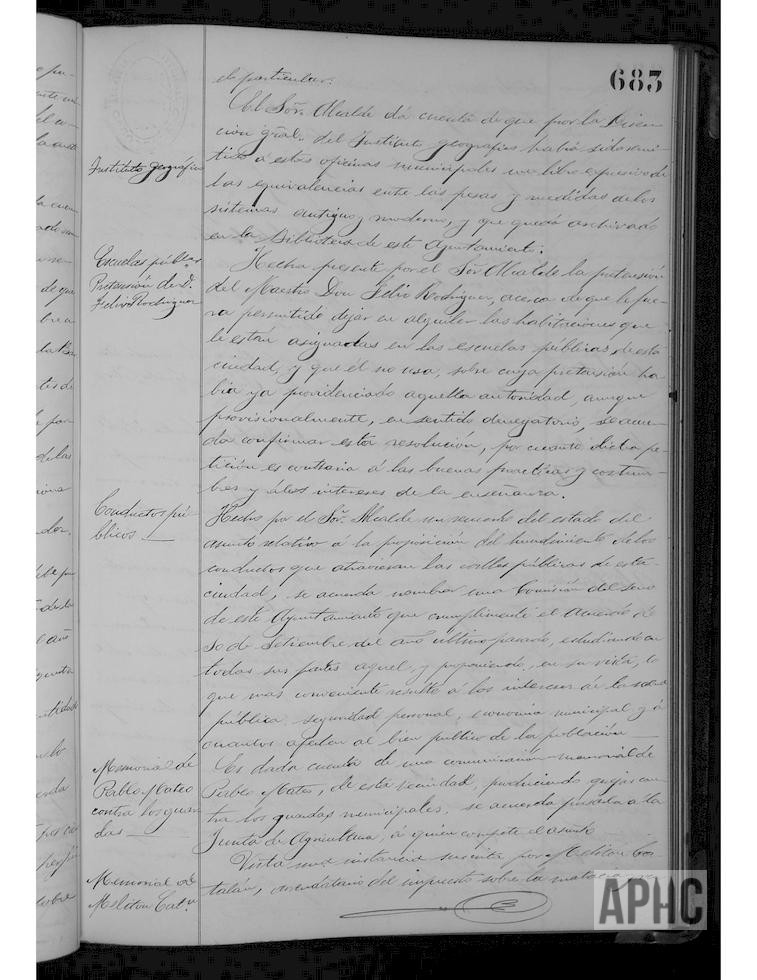 683
el particular.
El Sor. Alcalde dá cuenta de que por la Direc
ción gral. del Instituto geográfico había sido remi
tido á estas oficinas municipales un libro expresivo de
Instituto geográfico
las equivalencias entre las pesas y medidas de los
sistemas antiguo y moderno, y que quedó archivado
en la Biblioteca de este Ayuntamiento.
Escuelas públcas
Pretensión de D.
Felix Rodriguez
Hecha presente por el Sor. Alcalde la pretensión
del Maestro Don Felix Rodriguez, acerca de que le fue
ra permitido dejar en alquiler las habitaciones que
le están asignadas en las escuelas públicas de esta
ciudad, y que él no usa, sobre cuya pretensión ha
bia ya providenciado aquella autoridad, aunque
provisionalmente, en sentido denegatorio, se acuer
da confirmar esta resolución, por cuanto dicha pe
tición es contraria á las buenas practicas y costum
bres y álos intereses de la enseñanza.
Conductos pú
blicos
Hecho por el Sor. Alcalde un resumen del estado del
asunto relativo á la proposición del hundimiento de los
conductos que atraviesan las calles públicas de esta
ciudad, se acuerda nombrar una Comisión del seno
de este Ayuntamiento que cumplimente el acuerdo de
30 de Setiembre del año último pasado, estudiando en
todas sus partes aquel, y proponiendo, en su vista, lo
que mas conveniente resulte á los intereses de la salud
pública, seguridad personal, economia municipal y á
cuantos afectan al bien público de la población
Memorial de
Pablo Mateo
contra los guar
das
Es dada cuenta de una comunicación-memorial de
Pablo Mateo, de esta vecindad, produciendo quejas con
tra los guardas municipales, se acuerda pasarla á la
Junta de Agricultura, á quien compete el asunto
Memorial de
Meliton Catn
Vista una instancia suscrita por Meliton Ca
talan, arrendatario del impuesto sobre la matacia,
APHC